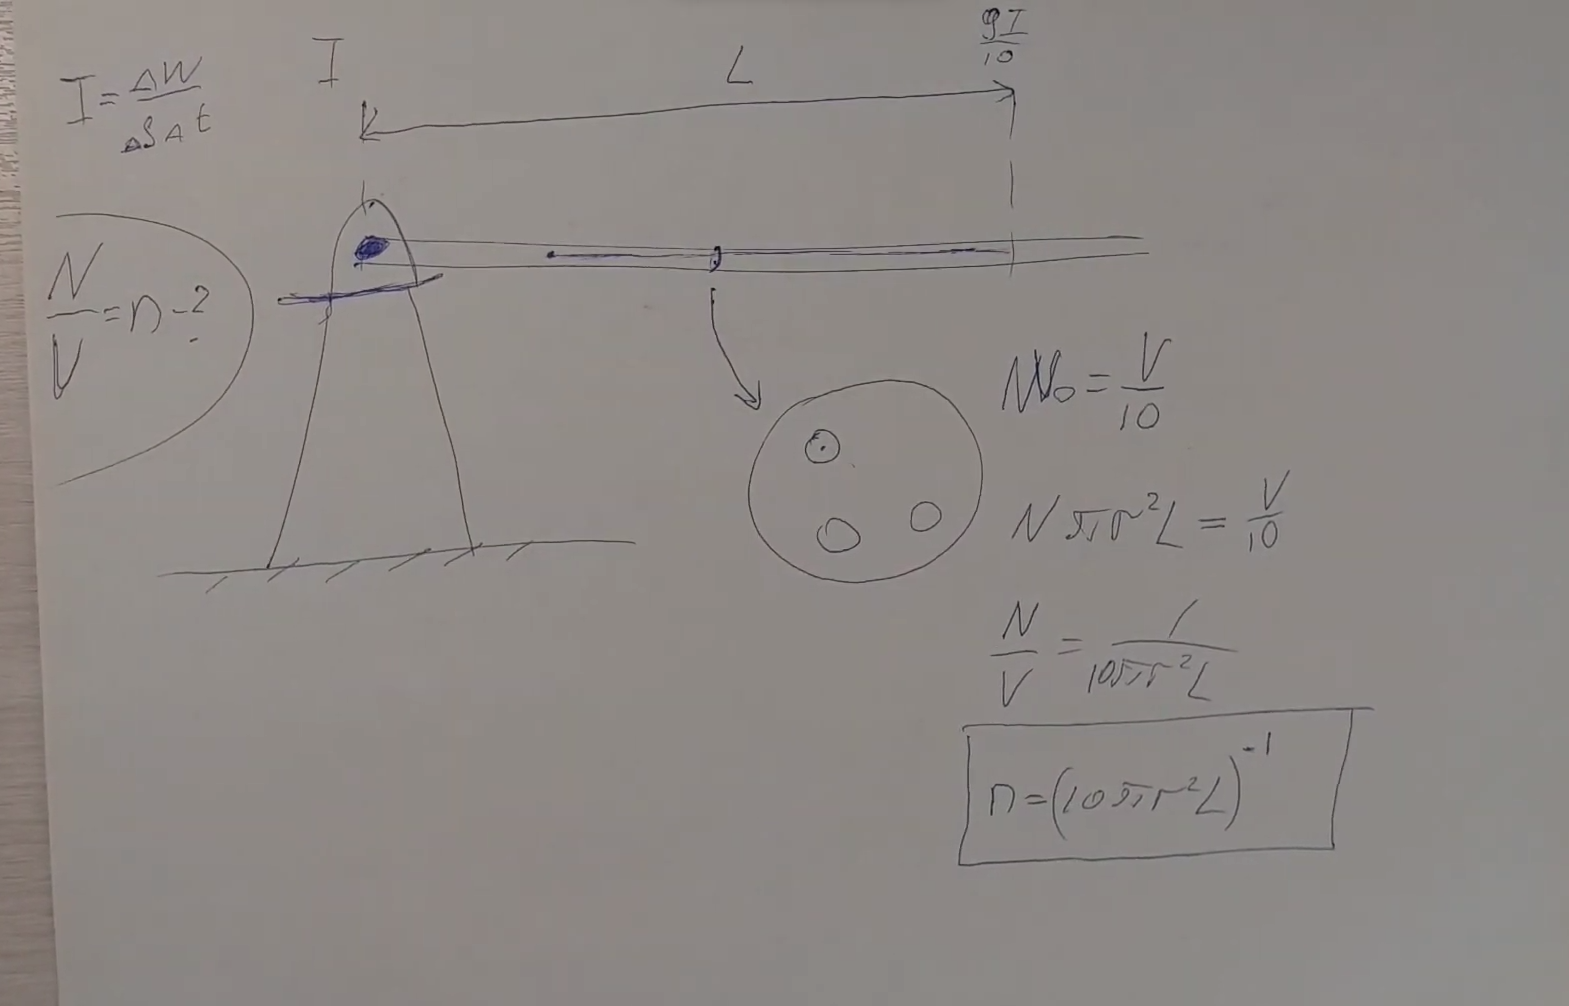 I = ΔW / ΔSΔt
I
L
9I / 10
N / V = n - ?
NV₀ = V / 10
Nπr²L = V / 10
N / V = 1 / 10πr²L
n = (10πr²L)⁻¹